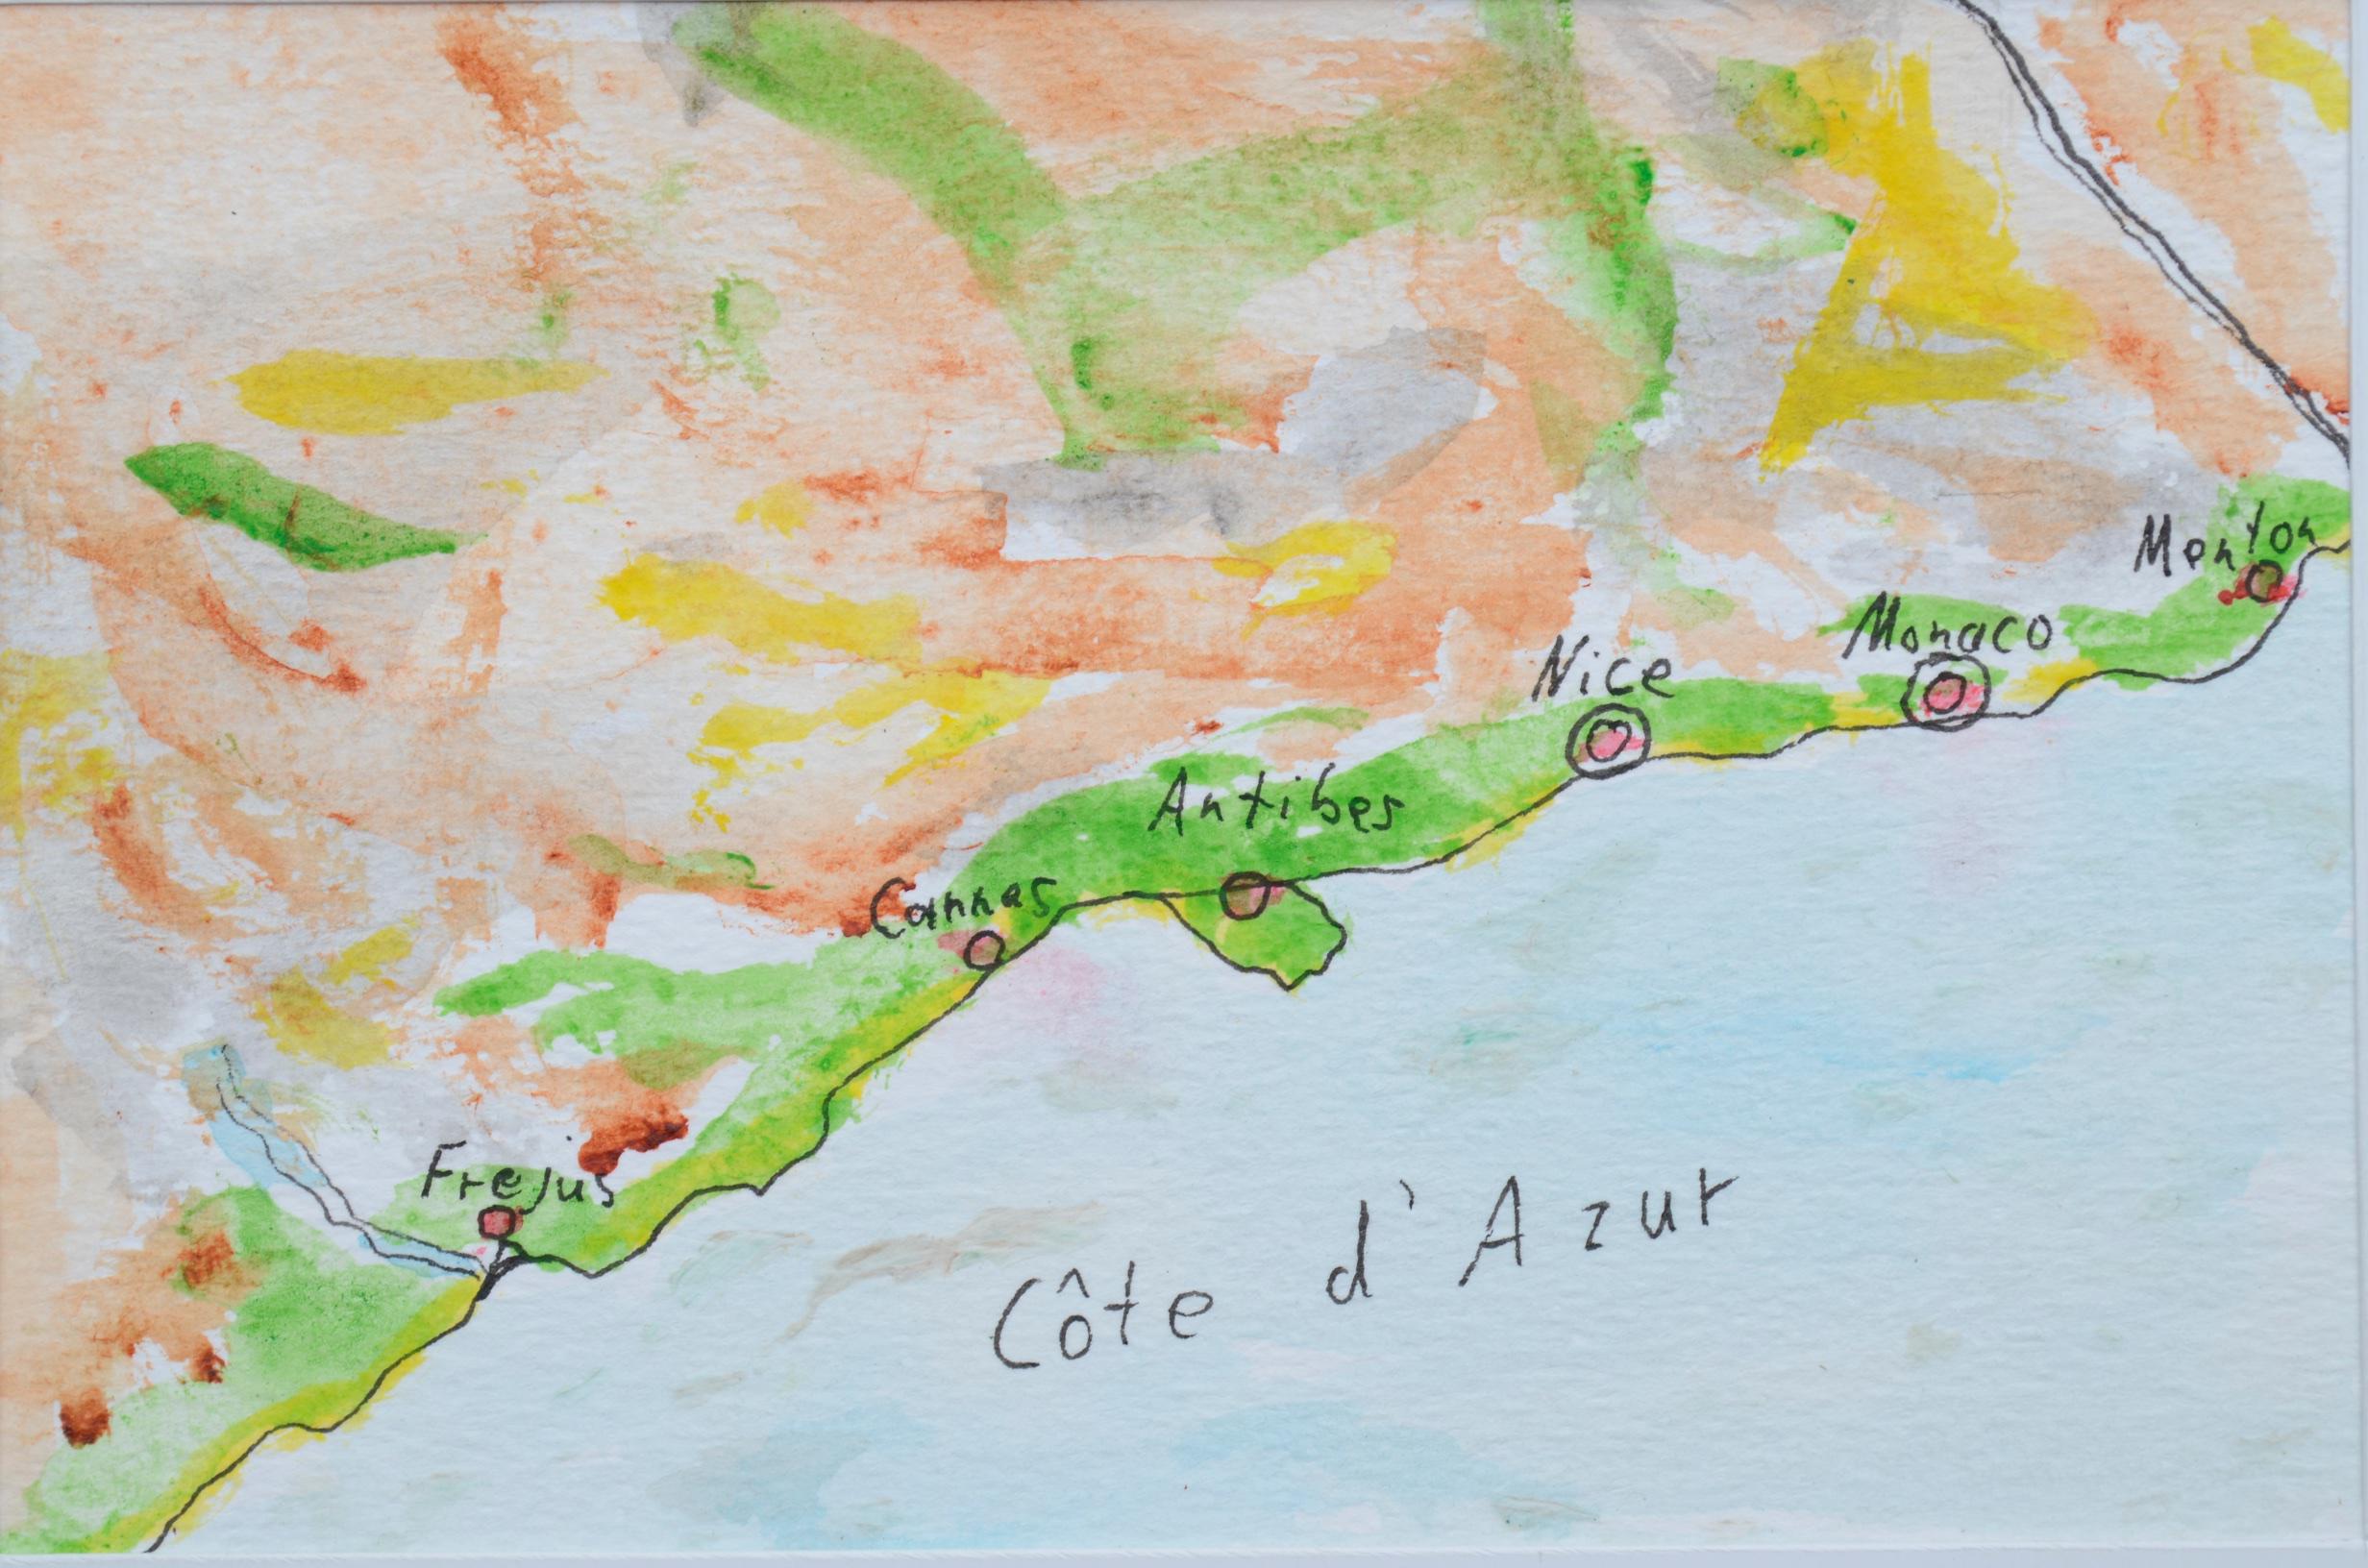 Menton
Monaco
Nice
Antibes
Cannes
Frejus
Côte d'Azur